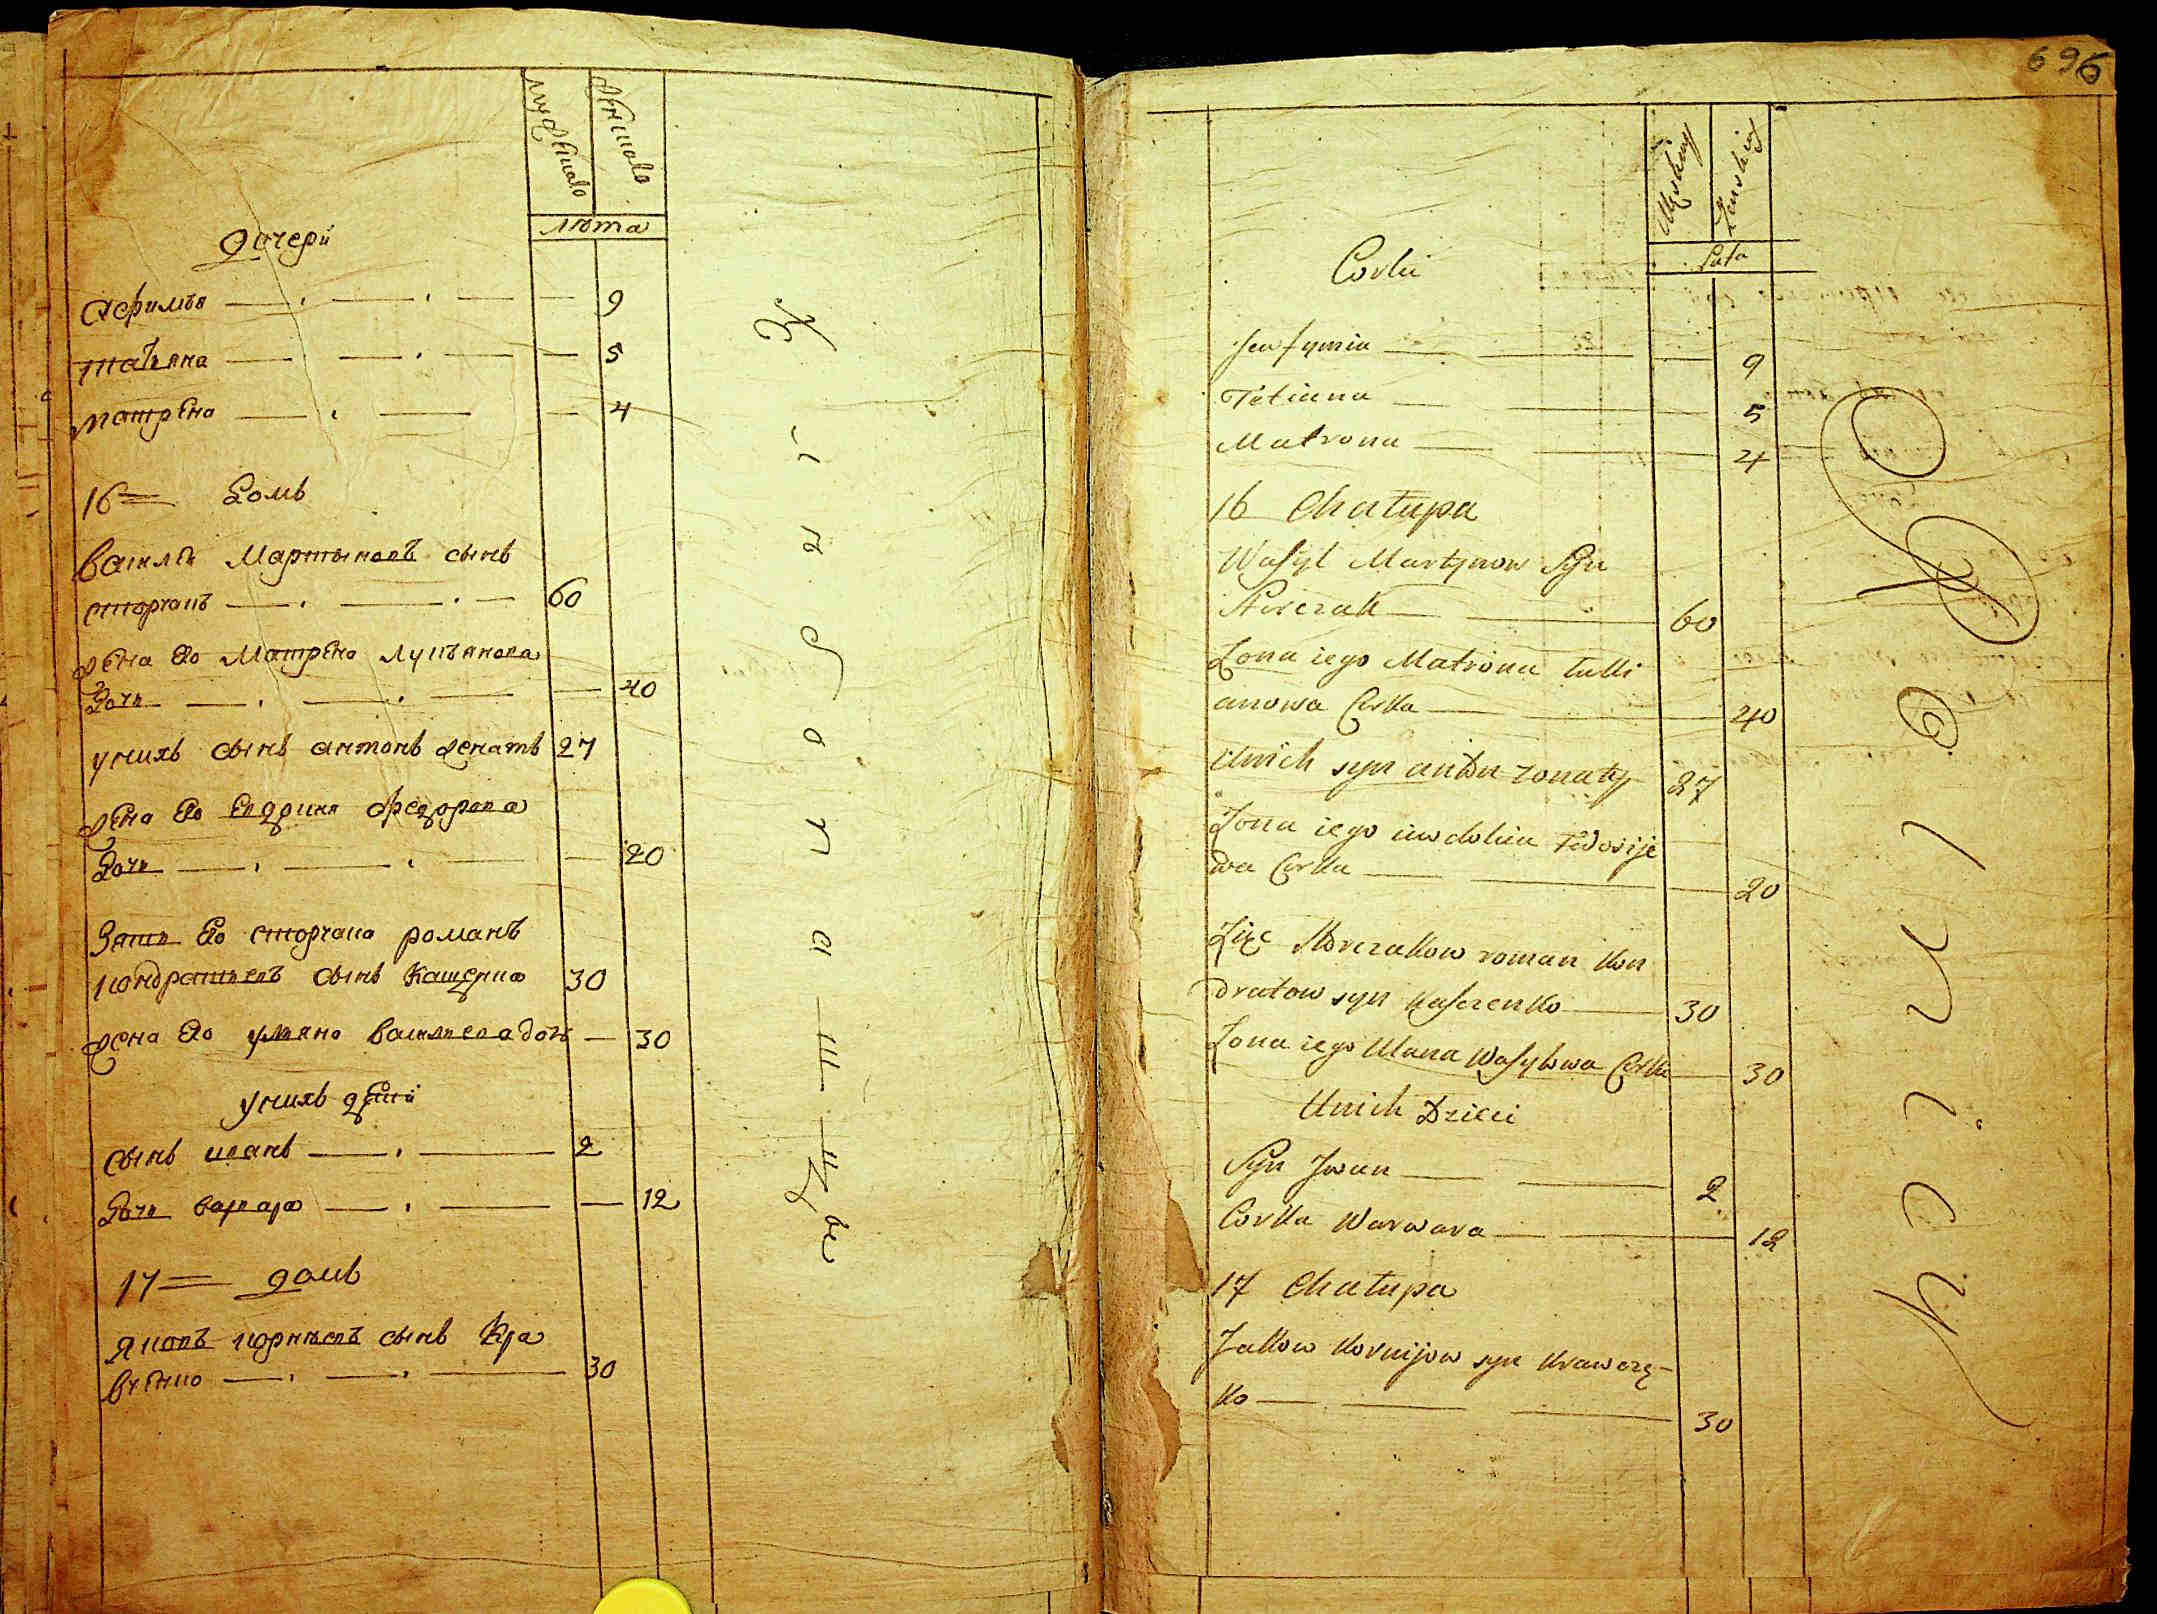 мужеска
женска
лѣта
Дочери
Афимья 9
татьяна 5
матрена 4
16 Домъ
Василь Мартыновъ сынъ
сторчакъ 60
жена его Матрена лукьянова
Дочь 40
у нихъ сынъ антонъ женатъ 27
жена его Евдокия федорова
Дочь 20
Зять его сторчака романъ
кондратьевъ сынъ Кащенко 30
жена его ульяна василева дочь 30
у нихъ дети
сынъ иванъ 2
Дочь варвара 12
17 домъ
яковъ корнѣевъ сынъ Кра
вченко 30
696
Męskiey
Żenskiey
Lata
Corki
Jewfymia 9
Tetianna 5
Matrona 4
16 Chałupa
Wasyl Martynow Syn
Storczak 60
Żona iego Matrona Łukki
anowa Corka 40
Unich syn anton zonaty 27
Żona iego iewdokia Fedosije
wa Corka 20
Zięc Storczakow roman Kon
dratow syn Kaszczenko 30
Żona iego Ulana Wasylowa Corka 30
Unich Dzieci
Syn Jwan 2
Corka Warwara 12
17 Chałupa
Jakow Kornijow syn Krawczę-
ko 30